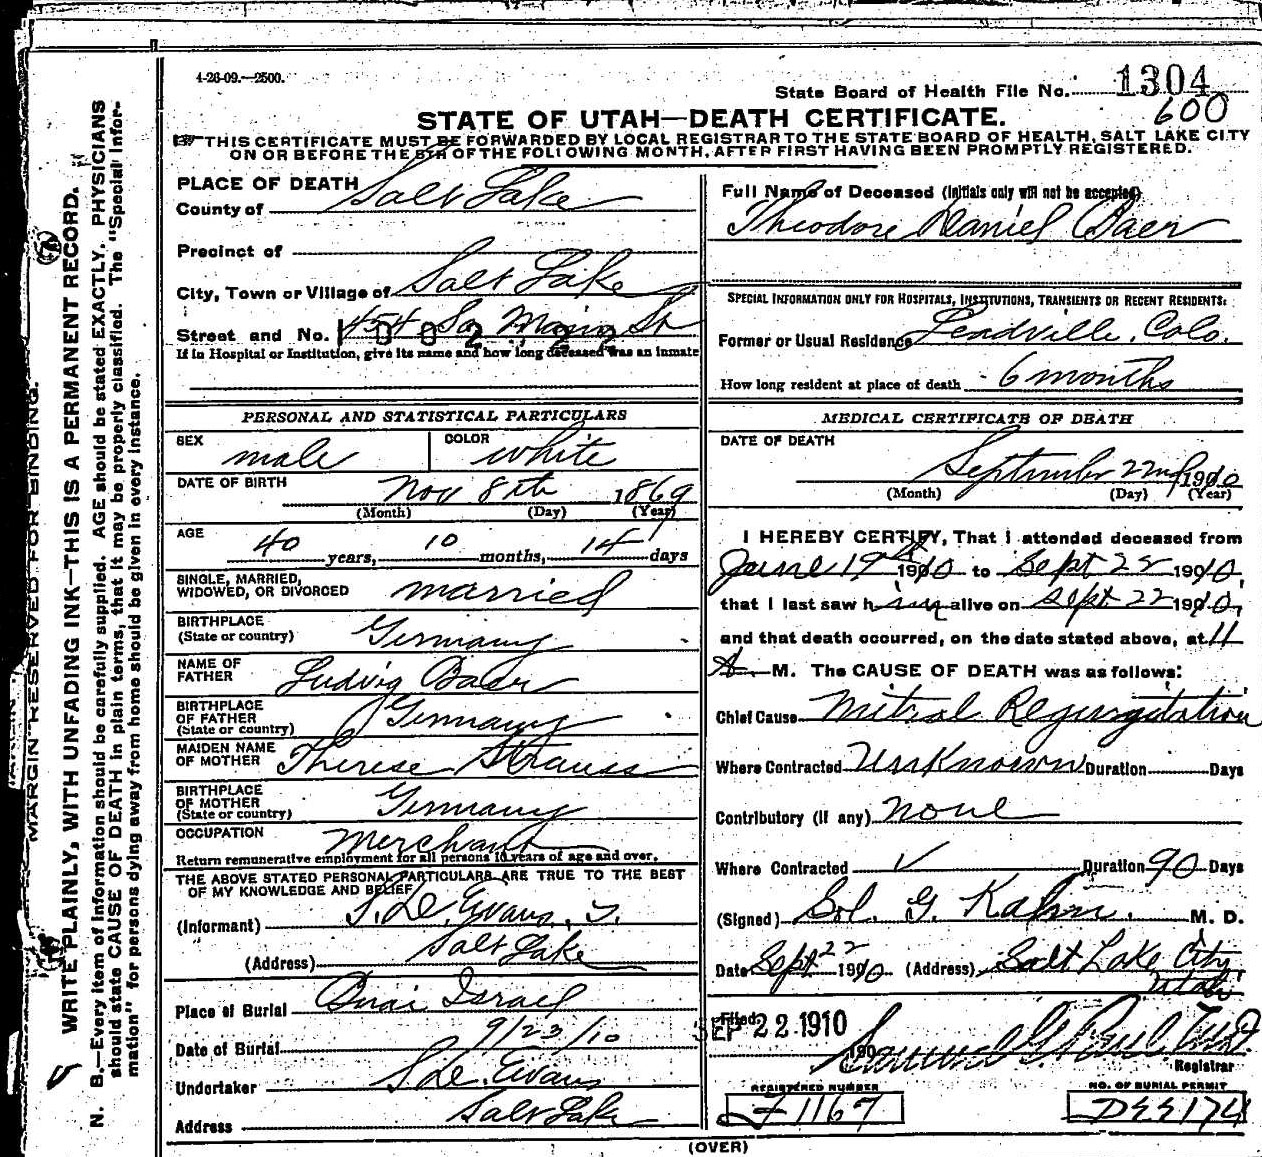 4-26-09.—2500.
State Board of Health File No. 1304
600
STATE OF UTAH—DEATH CERTIFICATE.
THIS CERTIFICATE MUST BE FORWARDED BY LOCAL REGISTRAR TO THE STATE BOARD OF HEALTH, SALT LAKE CITY
ON OR BEFORE THE 5TH OF THE FOLLOWING MONTH, AFTER FIRST HAVING BEEN PROMPTLY REGISTERED.
PLACE OF DEATH
County of Salt Lake
Precinct of
City, Town or Village of Salt Lake
Street and No. 454 So Main St
If in Hospital or Institution, give its name and how long deceased was an inmate
PERSONAL AND STATISTICAL PARTICULARS
SEX male COLOR white
DATE OF BIRTH Nov 8th 1869
(Month) (Day) (Year)
AGE 40 years, 10 months, 14 days
SINGLE, MARRIED,
WIDOWED, OR DIVORCED married
BIRTHPLACE
(State or country) Germany
NAME OF
FATHER Ludvig Baer
BIRTHPLACE
OF FATHER
(State or country) Germany
MAIDEN NAME
OF MOTHER Therese Strauss
BIRTHPLACE
OF MOTHER
(State or country) Germany
OCCUPATION Merchant
Return remunerative employment for all persons 10 years of age and over.
THE ABOVE STATED PERSONAL PARTICULARS ARE TRUE TO THE BEST
OF MY KNOWLEDGE AND BELIEF
(Informant) S. De. Evans,
(Address) Salt Lake
Place of Burial Bnai Israel
Date of Burial 9/23/10
Undertaker S De. Evans
Address Salt Lake
Full Name of Deceased (Initials only will not be accepted)
Theodore Daniel Baer
SPECIAL INFORMATION ONLY FOR HOSPITALS, INSTITUTIONS, TRANSIENTS OR RECENT RESIDENTS:
Former or Usual Residence Leadville, Colo.
How long resident at place of death 6 months
MEDICAL CERTIFICATE OF DEATH
DATE OF DEATH
September 22nd 1910
(Month) (Day) (Year)
I HEREBY CERTIFY, That I attended deceased from
June 19th 1910 to Sept 22 1910,
that I last saw him alive on Sept 22 1910,
and that death occurred, on the date stated above, at 11
A M. The CAUSE OF DEATH was as follows:
Chief Cause Mitral Regurgitation
Where Contracted Unknown Duration Days
Contributory (if any) none
Where Contracted Duration 90 Days
(Signed) Sol. G. Kahn. M. D.
Date Sept 22 1910 (Address) Salt Lake City,
Utah
Filed SEP 22 1910
190
Samuel G. Paul
Registrar
REGISTERED NUMBER
1167
NO. OF BURIAL PERMIT
(OVER)
MARGIN RESERVED FOR BINDING.
WRITE PLAINLY, WITH UNFADING INK—THIS IS A PERMANENT RECORD.
N. B.—Every item of information should be carefully supplied. AGE should be stated EXACTLY. PHYSICIANS
should state CAUSE OF DEATH in plain terms, that it may be properly classified. The "Special Infor-
mation" for persons dying away from home should be given in every instance.